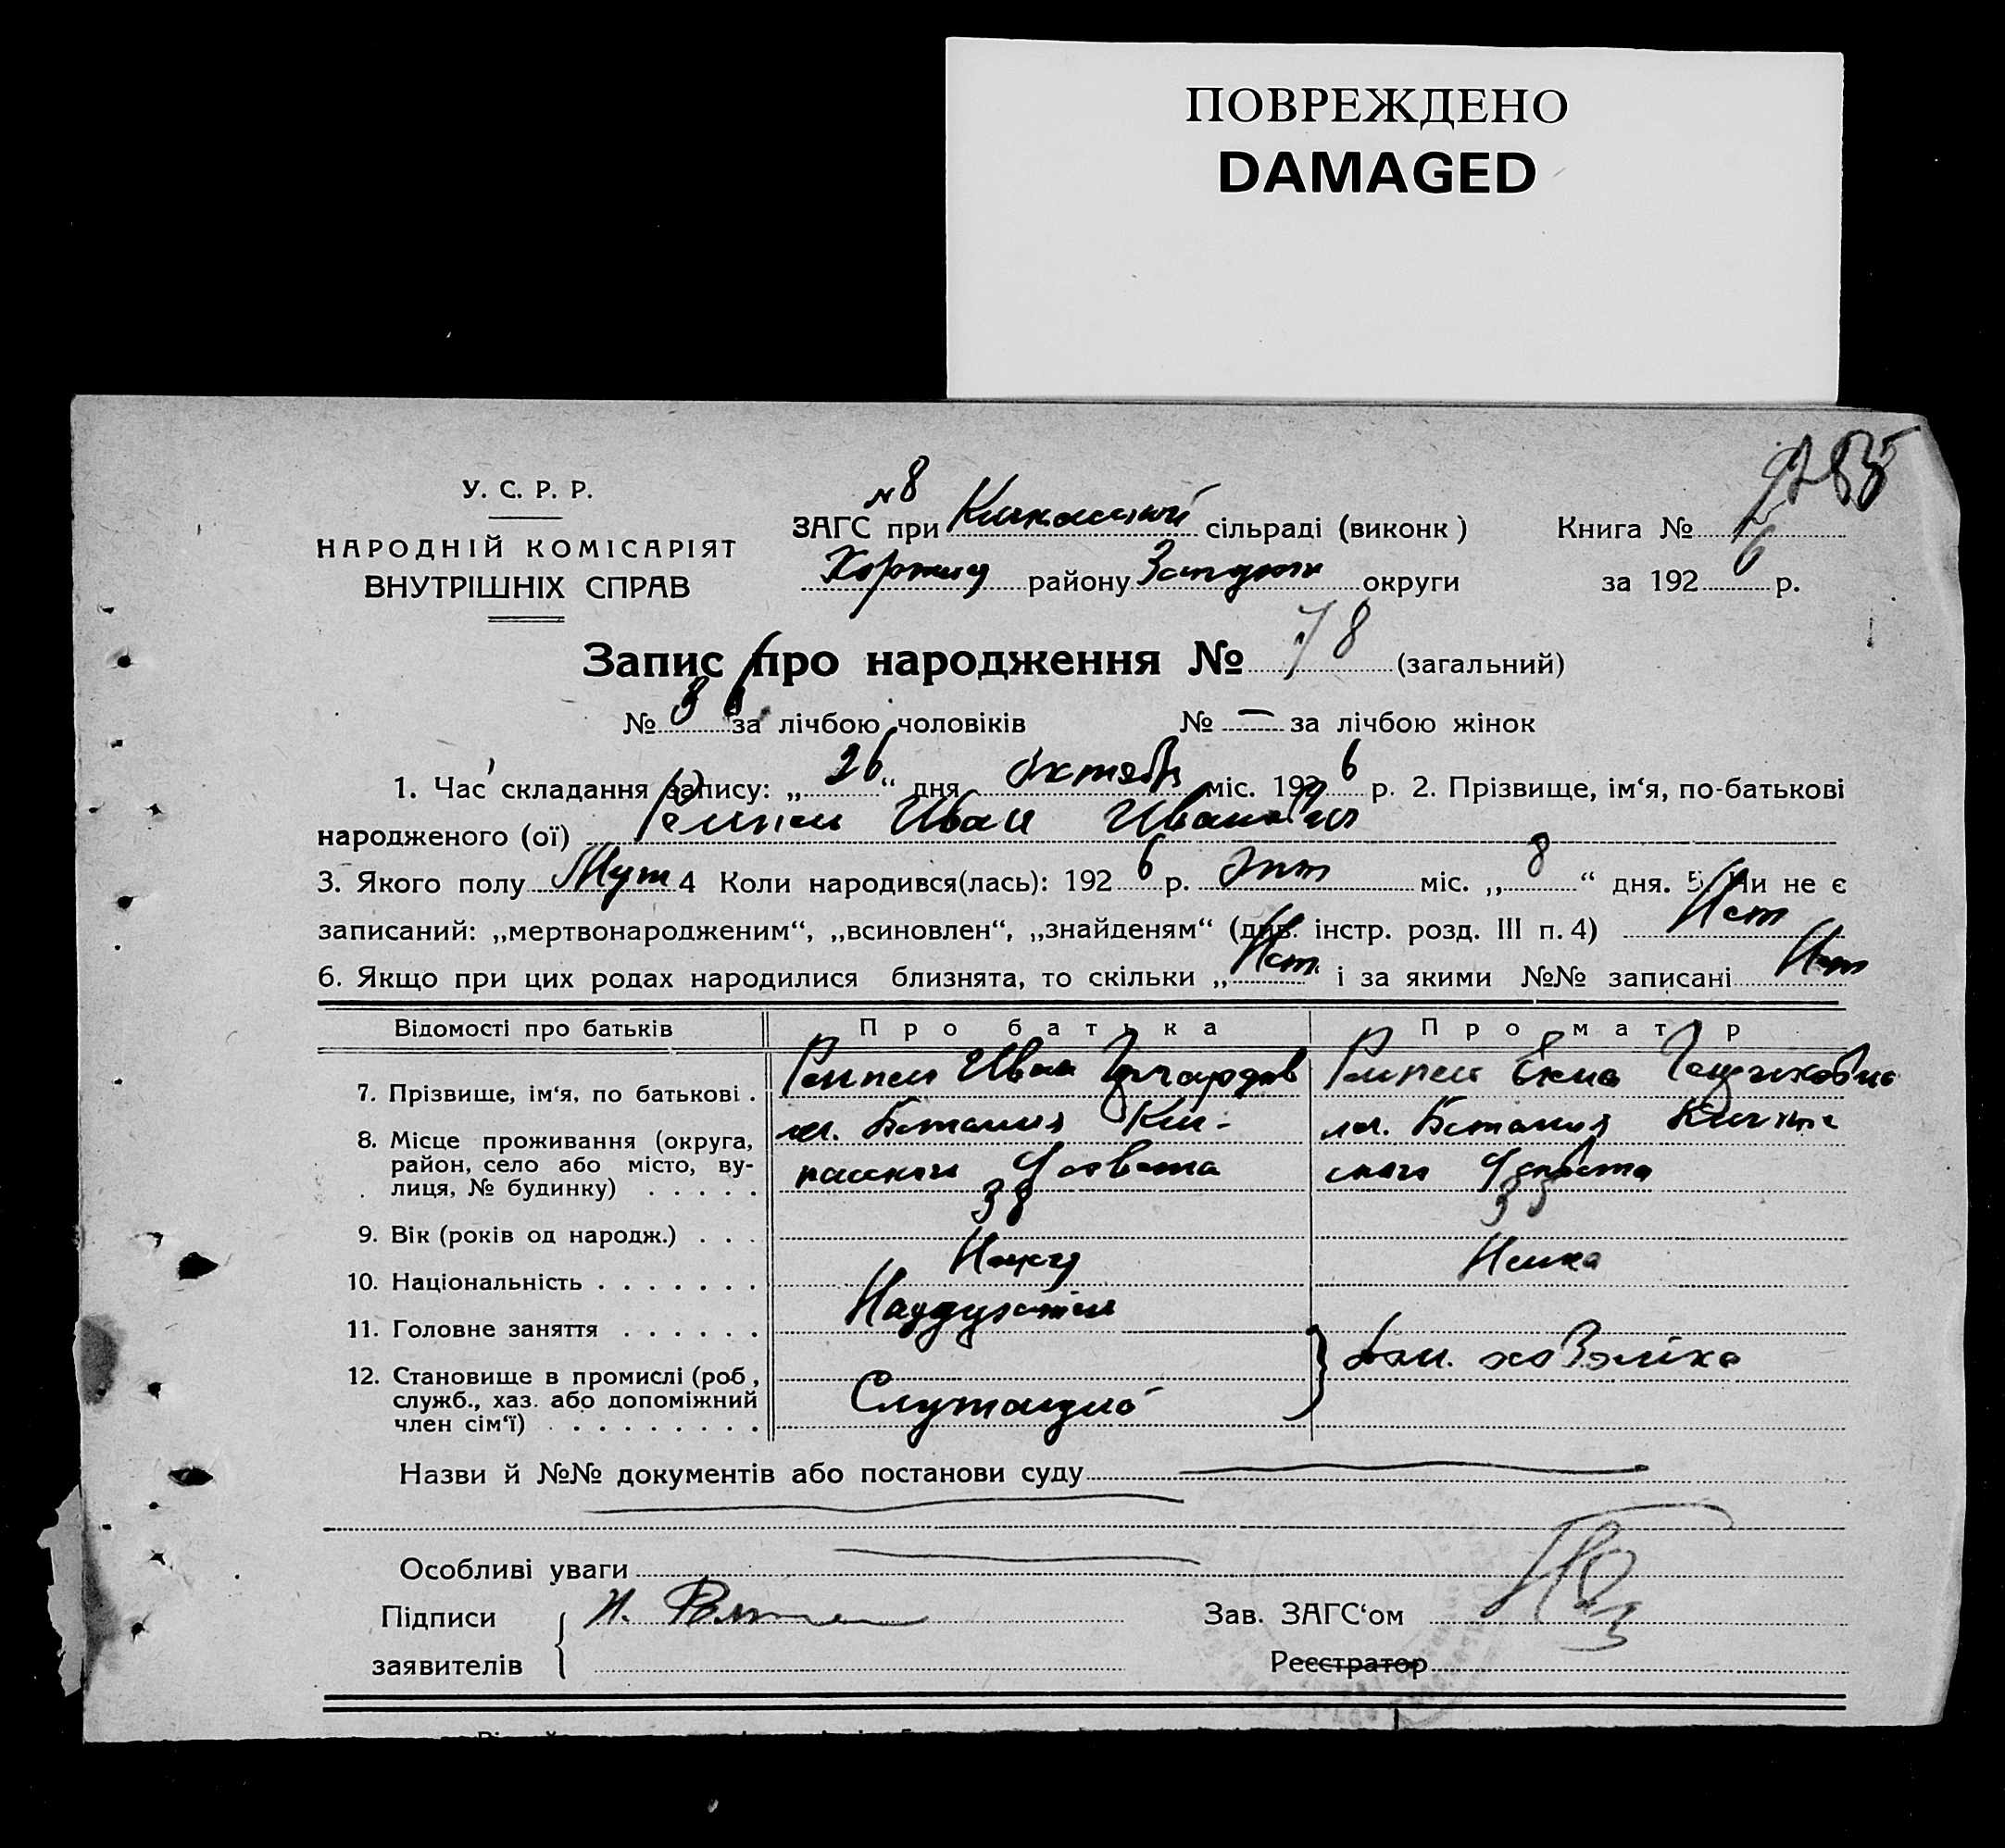 ПОВРЕЖДЕНО
DAMAGED
У. С. Р. Р.
НАРОДНІЙ КОМІСАРІЯТ
ВНУТРІШНІХ СПРАВ
№8
ЗАГС при сільраді (виконк)
району округи
Книга №
за 192 6 р.
Запис про народження № 78 (загальний)
№ за лічбою чоловіків № — за лічбою жінок
1. Час складання запису: „ 26 “ дня Октября міс. 192 6 р. 2. Прізвище, ім‘я, по-батькові
народженого (ої) Иван Иванович
3. Якого полу Муж 4 Коли народився(лась): 192 6 р. Окт міс. „ 8 “ дня. 5. Чи не є
записаний: „мертвонародженим“, „всиновлен“, „знайденям“ (див. інстр. розд. III п. 4) Нет
6. Якщо при цих родах народилися близнята, то скільки „ Нет і за якими №№ записані Нет
Відомості про батьків Про батька Про матір
7. Прізвище, ім‘я, по батькові . Иван
8. Місце проживання (округа, район, село або місто, вулиця, № будинку) . . . . .
9. Вік (років од народж.) . . . 38 33
10. Національність . . . . . . . Немец Немка
11. Головне заняття . . . . . .
12. Становище в промислі (роб, служб., хаз. або допоміжний член сім‘ї) . . . . . . . . . Служащий Дом. хозяйка
Назви й №№ документів або постанови суду
Особливі уваги
Підписи заявителів
Зав. ЗАГС‘ом
Реєстратор